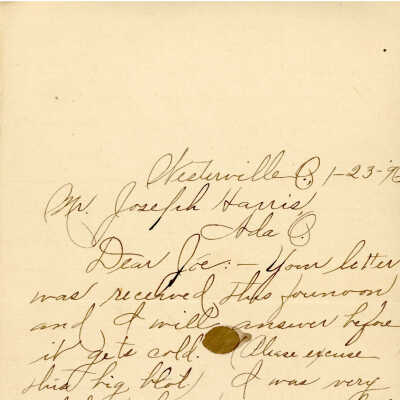 Westerville O., 1-23-'9
Mr. Joseph Harris,
Ada O.
Dear Joe: – Your letter
was received this forenoon
and I will answer before
it gets cold. (Please excuse
this big blot) I was very